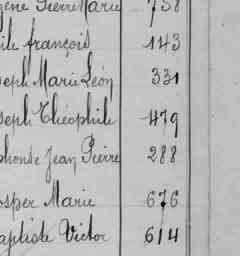 gène Pierre Marie 758
ile françois 143
seph Marie Léon 331
seph Théophile 479
phonse Jean Pierre 288
osper Marie 676
aptiste Victor 614